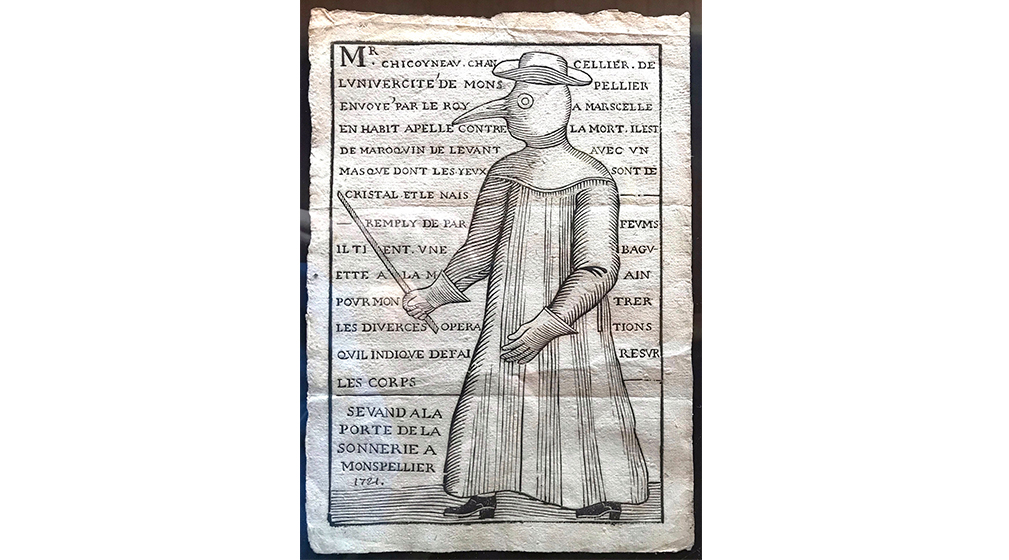 MR. CHICOYNEAU. CHAN CELLIER. DE
LVNIVERCITÉ DE MONS PELLIER
ENVOYÉ PAR LE ROY A MARSCELLE
EN HABIT APELLE CONTRE LA MORT. IL EST
DE MAROQVIN DE LEVANT AVEC VN
MASQVE DONT LES YEVX SONT DE
CRISTAL. ET LE NAIS
REMPLY DE PAR FEVMS
IL TIENT. VNE BAGV-
ETTE A LA M AIN
POVR MON TRER
LES DIVERCES OPERA TIONS
QVIL INDIQVE DE FAI RE SVR
LES CORPS
SE VAND A LA
PORTE DE LA
SONNERIE A
MONSPELLIER
1721.